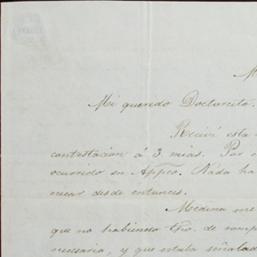 M
Mi querido Doctorcito.
Recivi esta
contestacion á 3 mias. Por
ocurrido en Appco. Nada ha
nicar desde entonces.
Medina me
que no habiendo Gno. de
necesaria, y que estaba señalad